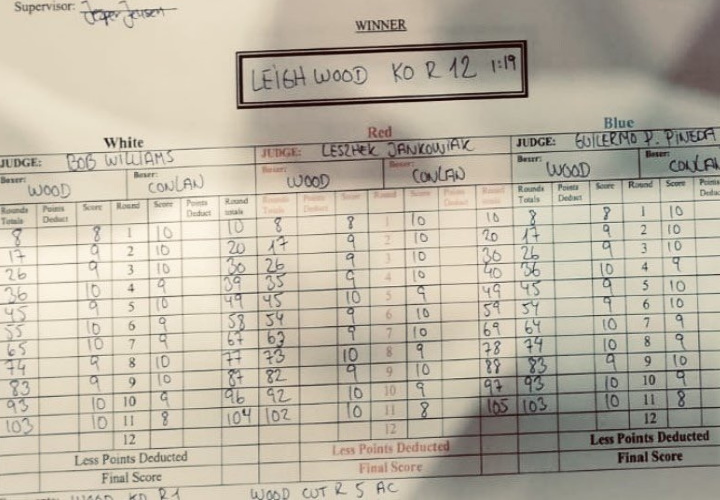 Supervisor: Jesper Jensen
WINNER
LEIGH WOOD KO R 12 1:19
White Red Blue
JUDGE: BOB WILLIAMS JUDGE: LESZHEK JANKOWIAK JUDGE: GUILERMO P. PINEDA
Boxer: Boxer: Boxer: Boxer: Boxer: Boxer:
WOOD CONLAN WOOD CONLAN WOOD CONLAN
Rounds Totals Points Deduct Score Round Score Points Deduct Round totals Rounds Totals Points Deduct Score Round Score Points Deduct Round totals Rounds Totals Points Deduct Score Round Score
8 8 1 10 10 8 8 1 10 10 8 8 1 10
17 9 2 10 20 17 9 2 10 20 17 9 2 10
26 9 3 10 30 26 9 3 10 30 26 9 3 10
36 10 4 9 39 35 9 4 10 40 36 10 4 9
45 9 5 10 49 45 10 5 9 49 45 9 5 10
55 10 6 9 58 54 9 6 10 59 54 9 6 10
65 10 7 9 67 63 9 7 10 69 64 10 7 9
74 9 8 10 77 73 10 8 9 78 74 10 8 9
83 9 9 10 87 82 9 9 10 88 83 9 9 10
93 10 10 9 96 92 10 10 9 97 93 10 10 9
103 10 11 8 104 102 10 11 8 105 103 10 11 8
12 12 12
Less Points Deducted Less Points Deducted Less Points Deducted
Final Score Final Score Final Score
WOOD KD R1 WOOD CUT R 5 AC